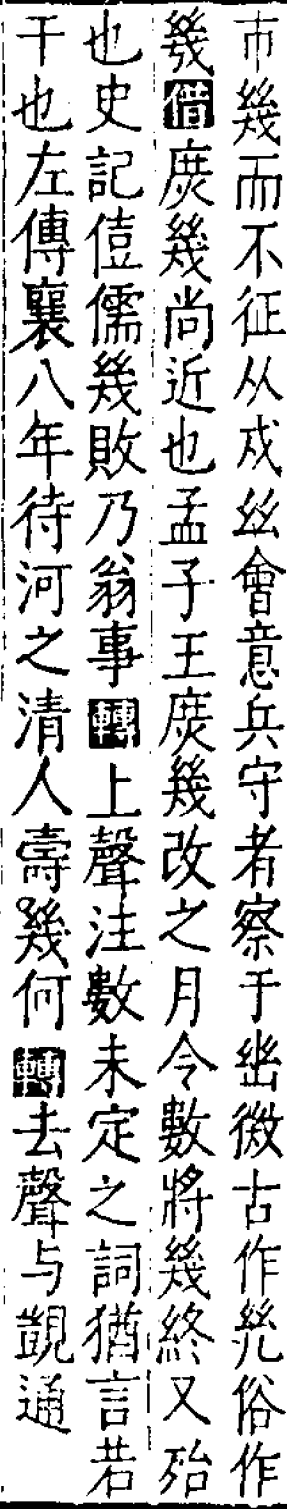 市幾而不征从戍𢆶會意兵守者察于幽微古作㡬俗作
㡬借庶幾尚近也孟子王庶幾改之月令數將幾終又殆
也史記僖儒幾敗乃翁事轉上聲注數未定之詞猶言若
干也左傳襄八年待河之清人壽幾何轉去聲与覬通